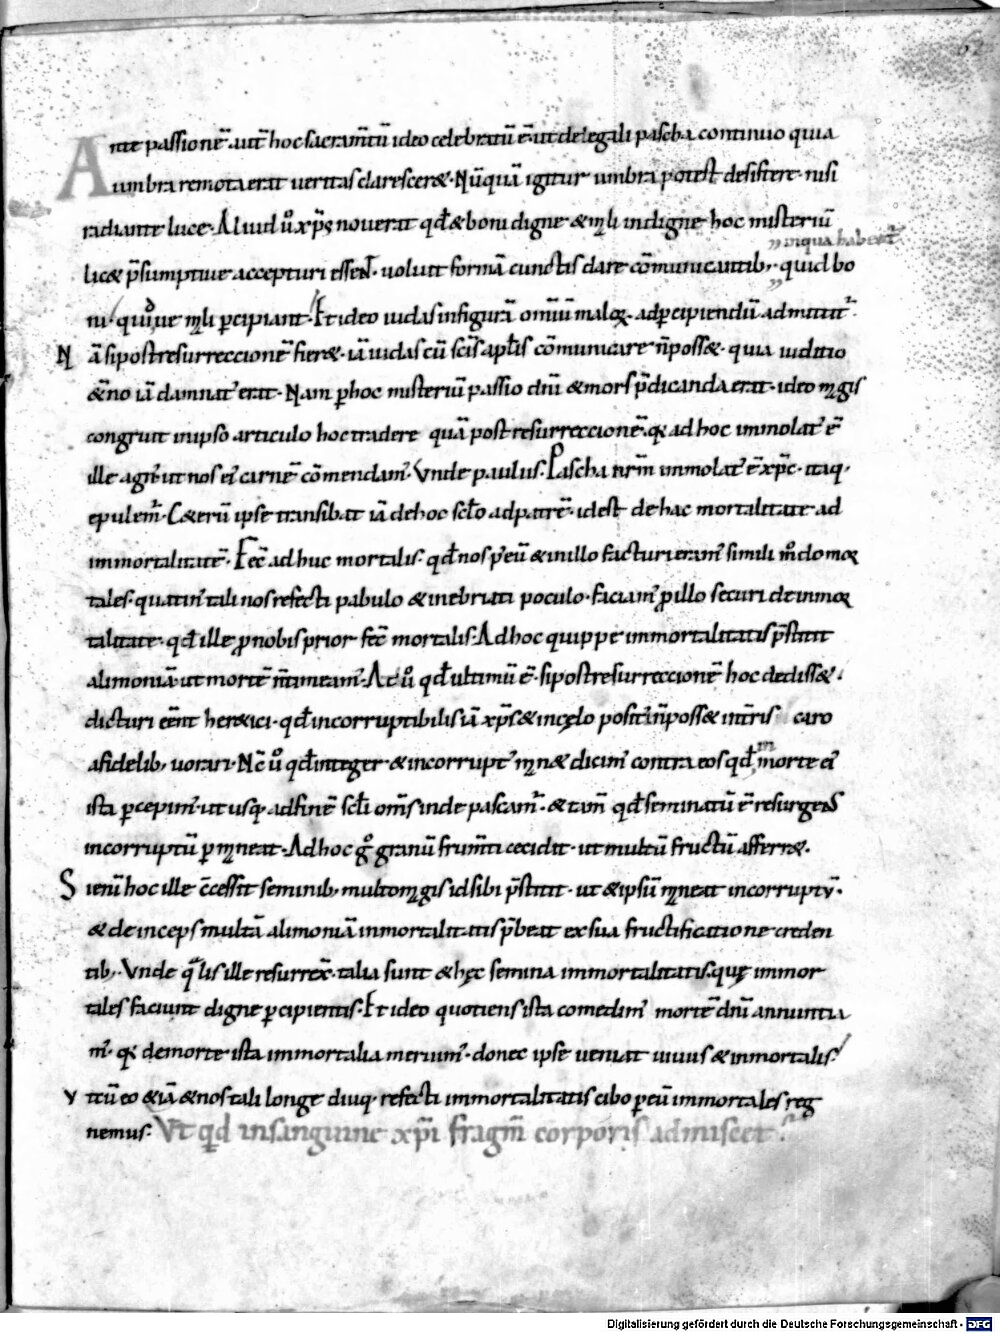 62
Ante passionē. aut̄ hoc sacram̄tū ideo celebratū ē. ut de legali pascha continuo quia
umbra remota erat ueritas claresceret. Nūquā igitur umbra potest desistere. nisi
radiante luce. Aliud u͛o xp̄s nouerat qđ & boni digne & m̨li indigne hoc misteriū
inqua haberet͛
lic& p̄sumptiue accepturi essent. uoluit formā cunctis dare cōmunicantib; quid bo
ni. quidue m̨li p̱cipiant. Et ideo iudas in figurā omiū maloꝝ. ad p̱cipiendū admittit͛.
Nā si post resurreccionē fier&. iā iudas cū sc̄is apl̄is cōmunicare n̄ poss&. quia iuditio
ēno iā damnat͛ erat. Nam p̱ hoc misteriū passio dn̄i & mors p̄dicanda erat. ideo m̨gis
congruit in ipso articulo hoc tradere quā post resurreccionē. q; ad hoc immolat͛ ē
ille agn͛. ut nos ei͛ carnē cōmendam͛. Vnde paulus. Pascha nr̄m immolat͛ ē xp̄c. itaq;
epulem͛. C&erū ipse transibat iā de hoc sc̄lo ad patrē. id est de hac mortalitate ad
immortalitatē. Fec̄ ad huc mortalis. qđ nos p̱ eū & in illo facturi eram͛ simili m̊do moꝝ
tales. quatin͛ tali nos refecti pabulo & inebriati poculo. faciam͛ ꝓ illo securi de inmoꝝ
talitate. qđ ille ꝓ nobis prior fec̄ mortalis. Ad hoc quippe immortalitatis p̄stitit
alimoniā. ut mortē n̄ timeam͛. At u͛o qđ ultimū ē. si post resurreccionē hoc dediss&.
dicturi eēnt her&ici. qđ incorruptibilis iā xp̄s & in cęlo posit͛ n̄ poss& in t̄ris caro
a fidelib; uorari. Nc̄ u͛o qđ integer & incorrupt͛ m̨n& dicim͛ contra eos qđ in morte ei͛
ista p̱cepim͛. ut usq; ad finē sc̄li om̄s inde pascam͛. & tam̄ qđ seminatū ē resurgens
incorruptū p̱m̨neat. Ad hoc g͛o granū frum̄ti cecidit. ut multū fructū afferr&.
Si enī hoc ille c̄cessit seminib; multo m̨gis id sibi p̄stitit. ut & ipsū m̨neat incorruptū.
& deinceps multā alimoniā inmortalitatis p̄beat ex sua fructificatione creden
tib;. Vnde q̄lis ille resurrex̄. talia sunt & hęc semina immortalitatis. quę immor
tales faciunt digne p̱cipientis. Et ideo quotiens ista comedim͛ mortē dn̄i annuntia
m͛. q; de morte ista immortalia meruim͛. donec ipse ueniat uiuus & inmortalis.
Vt cū eo & iā & nos tali longe diuq; refecti immortalitatis cibo p̱ eū immortales reg
nemus. Vt qđ in sanguine xp̄i fragm̄ corporis admiscet͛.
Digitalisierung gefördert durch die Deutsche Forschungsgemeinschaft - DFG